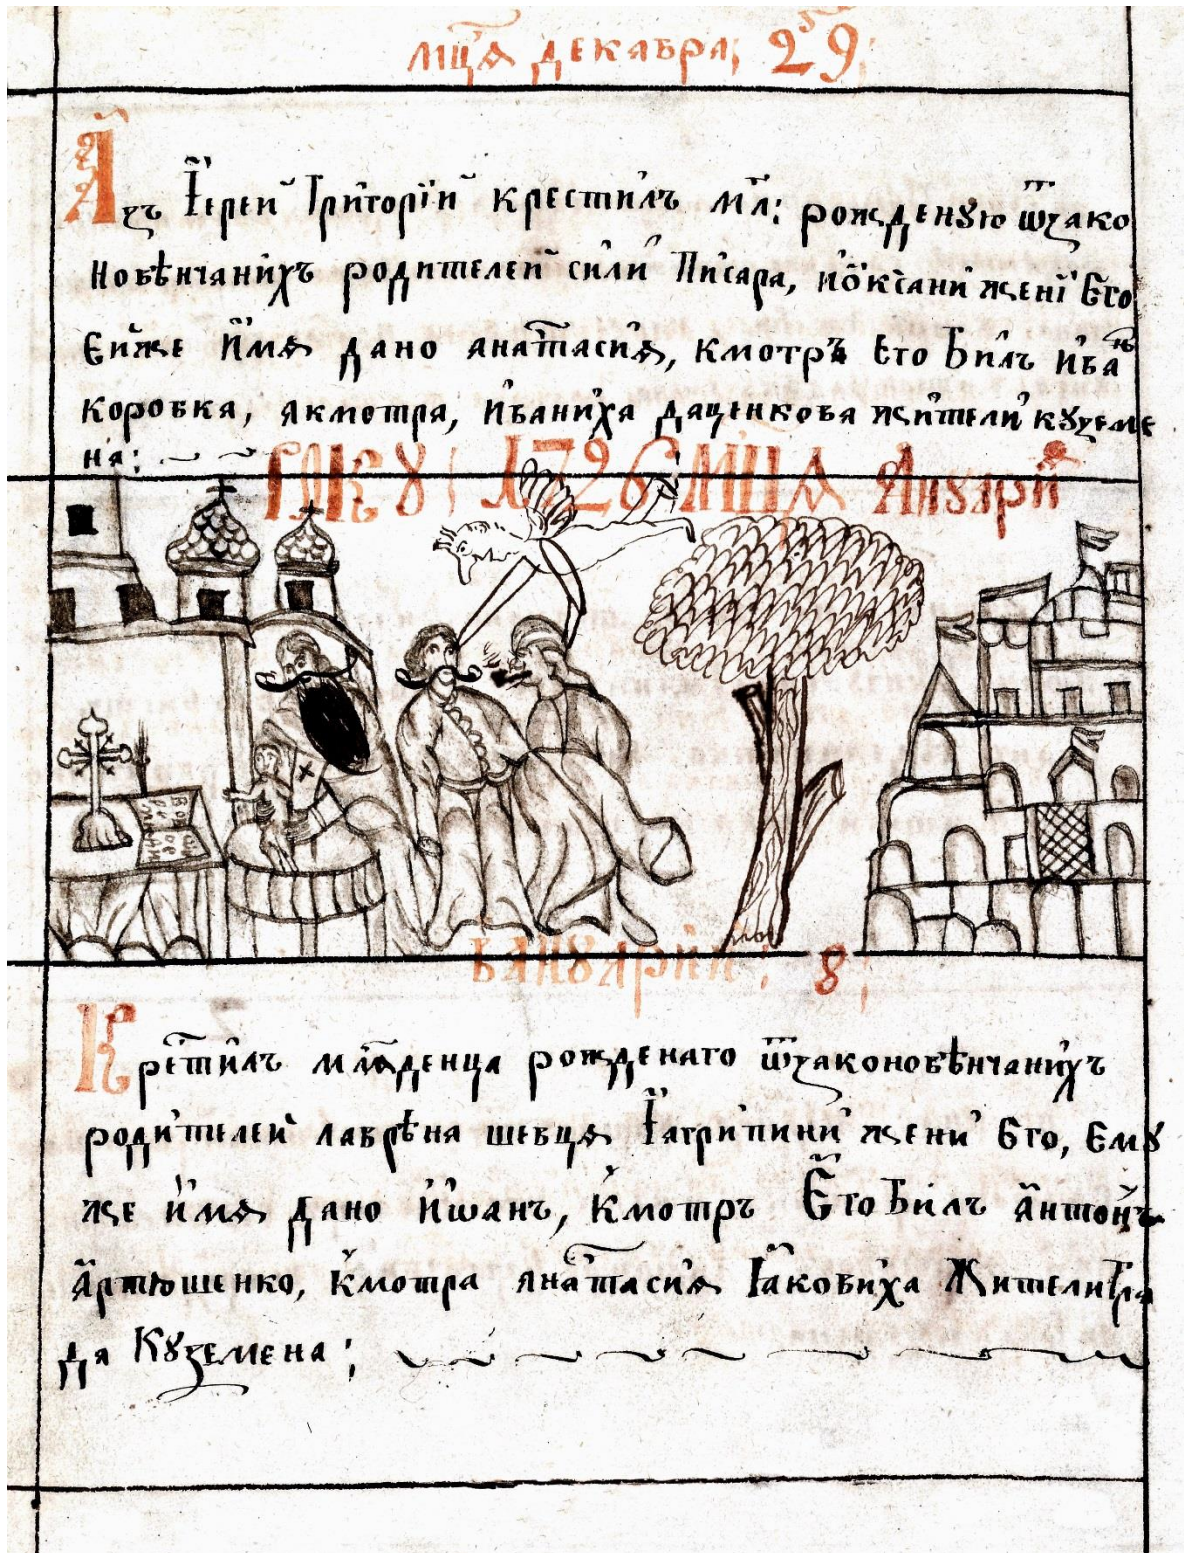 мц҃ѧ декабра; 29;
Азъ Іерей Григорїй крестилъ мл҃: рожденꙋю ѿзако
новѣнчанихъ родителей сили Писара, иѻксани жени Его
Ейже имѧ дано анатасиѧ, кмотръ Его Билъ иванъ
коробка, акмотра, иваниха даценкова жители кꙋземе
на:
Рокꙋ 1726 мц҃а Анꙋарій
Ванꙋарий: 8;
Крестилъ млѧденца рожденаго ѿзаконовѣнчанихъ
родителей лаврѣна шевцѧ Іагрипини жени Его, Емꙋ
же имѧ дано Иѡанъ, кмотръ Его Билъ антонъ
артюшенко, кмотра анатасиѧ Іаковиха Жители гра
да Кꙋземена;